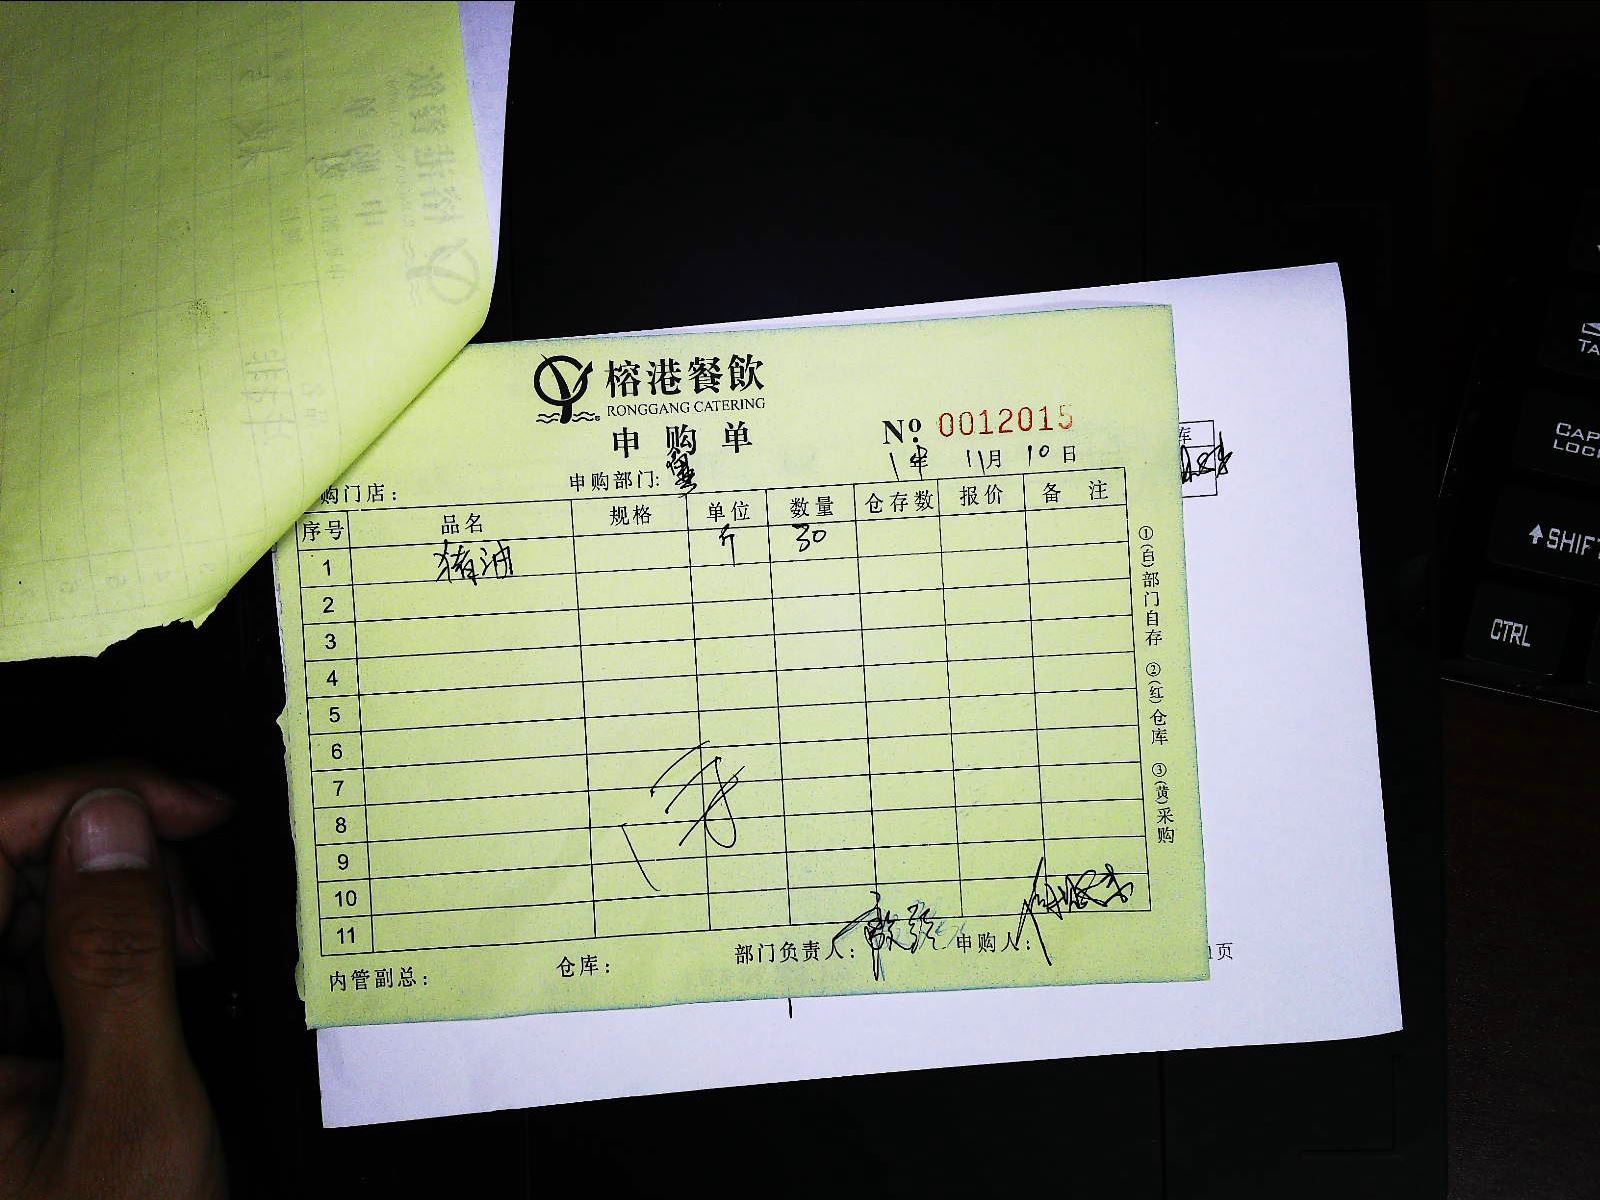 榕港餐飲
RONGGANG CATERING
申购单
Nº 0012015
购门店： 申购部门: 1年 11月 10日
序号 品名 规格 单位 数量 仓存数 报价 备注
1 猪油 斤 30
2
3
4
5
6
7
8
9
10
11
内管副总： 仓库： 部门负责人： 申购人：
①(白)部门自存 ②(红)仓库 ③(黄)采购
库
1页
CAP
LOC
SHIFT
CTRL
TA